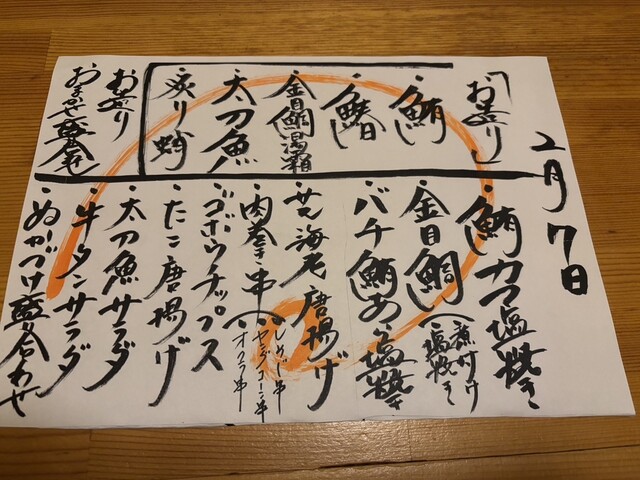 2月7日
「お造り」
・鮪
・鰆
・金目鯛湯霜
・太刀魚
・炙り蛸
お造り
おまかせ盛合せ
・鮪カマ塩焼き
・金目鯛(煮付け
・塩焼き
・バチ鮪あら塩焼き
・芝海老唐揚げ
・肉巻き串(しめじ串
・ヤングコーン串
・オクラ串
・ゴボウチップス
・たこ唐揚げ
・太刀魚サラダ
・牛タンサラダ
・ぬかづけ盛合わせ